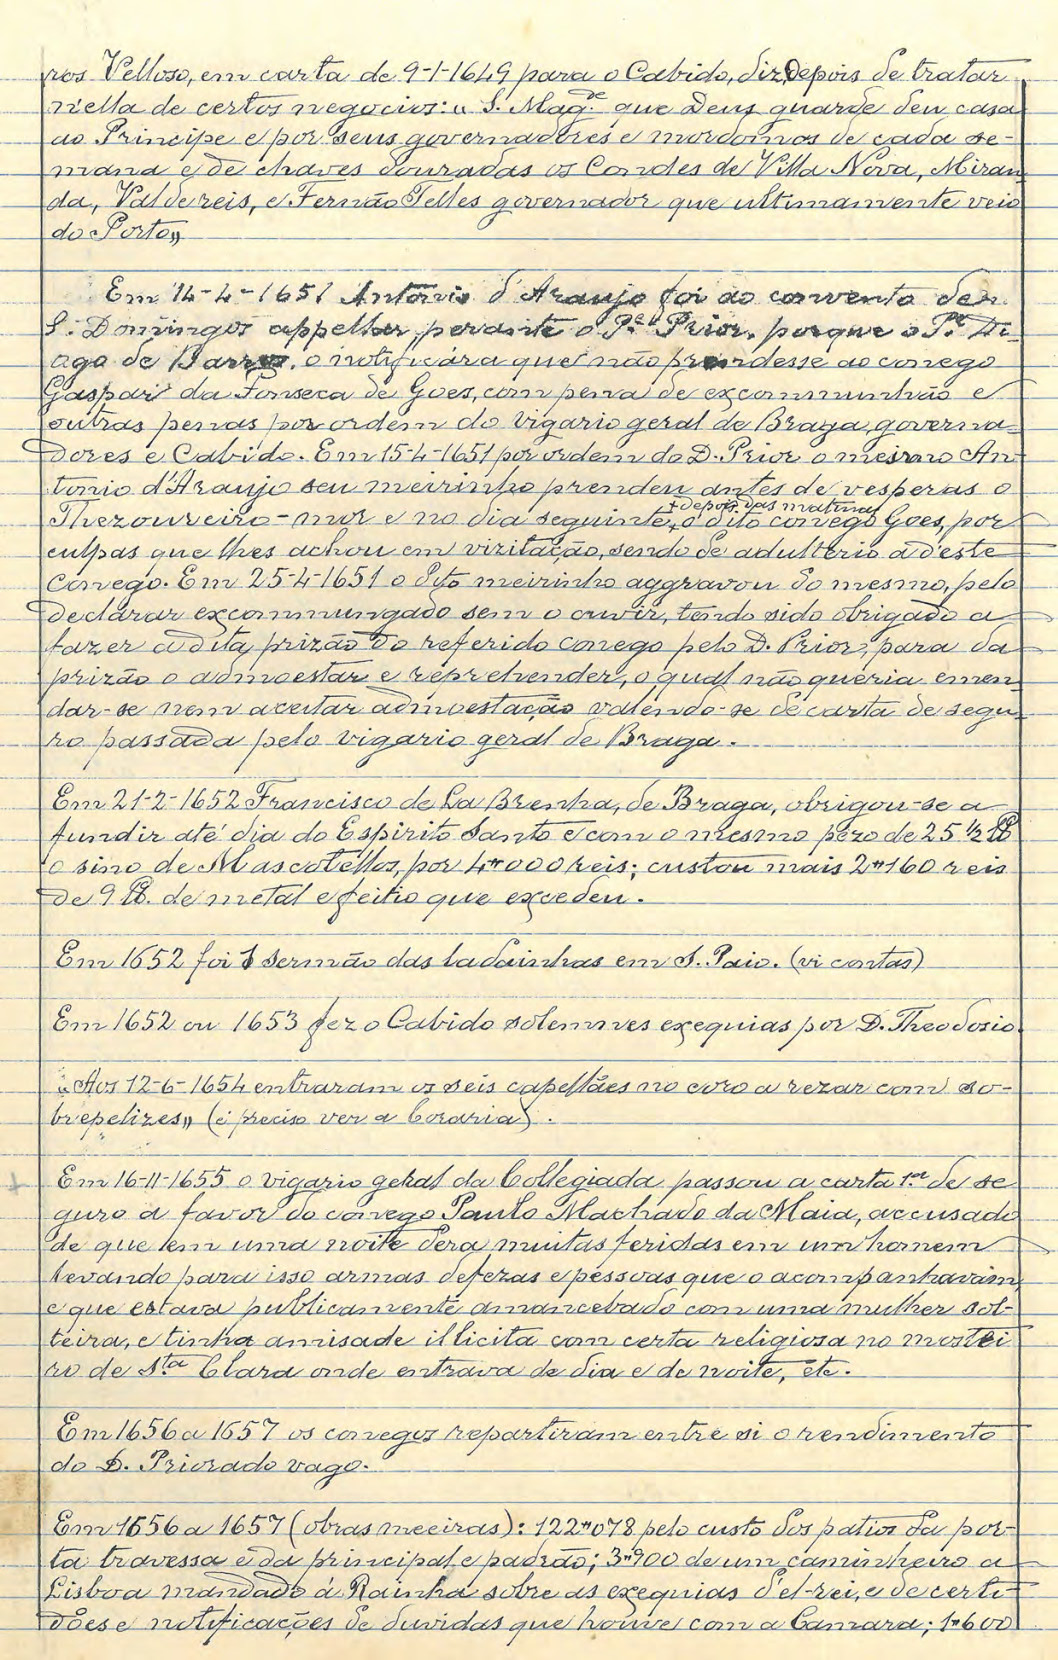 ros Velloso, em carta de 9-1-1649 para o Cabido, diz, depois de tratar
n'ella de certos negocios: « S. Mag.de que Deus guarde deu casa
ao Principe e por seus governadores e mordomos de cada se-
mana e de chaves douradas os Condes de Villa Nova, Miran
da, Val de reis, e Fernão Telles governador que ultimamente veio
do Porto»
Em 14-4-1651 Antonio d'Araujo foi ao convento de
S. Domingos appellar, perante o P.e Prior, porque o P.e Di-
ogo de Barros, o notificára que não prendesse ao conego
Gaspar da Fonseca de Goes, com pena de excommunhão e
outras penas por ordem do vigario geral de Braga, governa-
dores e Cabido. Em 15-4-1651 por ordem do D. Prior o mesmo An-
tonio d'Araujo seu meirinho prendeu antes de vesperas o
Thezoureiro-mor e no dia seguinte, + depois das matinas o dito conego Goes, por
culpas que lhes achou em vizitação, sendo de adulterio a d'este
conego. Em 25-4-1651 o dito meirinho aggravou do mesmo, pelo
declarar excommungado sem o ouvir, tendo sido obrigado a
fazer a dita prizão do referido conego pelo D. Prior, para da
prizão o admoestar e reprehender, o qual não queria emen-
dar-se nem aceitar admoestação valendo-se de carta de segu-
ro passada pelo vigario geral de Braga.
Em 21-2-1652 Francisco de La Brenha, de Braga, obrigou-se a
fundir até dia do Espirito Santo e com o mesmo pezo de 25 1/2 lb
o sino de Mascotellos, por 4#000 reis; custou mais 2#160 reis
de 9 lb. de metal e feitio que excedeu.
Em 1652 foi 1 sermão das ladainhas em S. Paio. (vi contas)
Em 1652 ou 1653 fez o Cabido solemnes exequias por D. Theodosio.
«Aos 12-6-1654 entraram os seis capellães no coro a rezar com so-
brepelizes» (é preciso ver a Coraria).
Em 16-11-1655 o vigario geral da Collegiada passou a carta 1.ª de se
guro a favor do conego Paulo Machado da Maia, accusado
de que em uma noite dera muitas feridas em um homem
levando para isso armas defezas e pessoas que o acompanhavam,
e que estava publicamente amancebado com uma mulher sol-
teira, e tinha amisade illicita com certa religiosa no mostei
ro de S.ta Clara onde entrava de dia e de noite, etc.
Em 1656 a 1657 os conegos repartiram entre si o rendimento
do D. Priorado vago.
Em 1656 a 1657 (obras meeiras): 122#078 pelo custo dos patios da por-
ta travessa e da principal e padrão; 3#900 de um caminheiro a
Lisboa mandado á Rainha sobre as exequias d'el-rei, e de certi-
dões e notificações de duvidas que houve com a Camara; 1#600